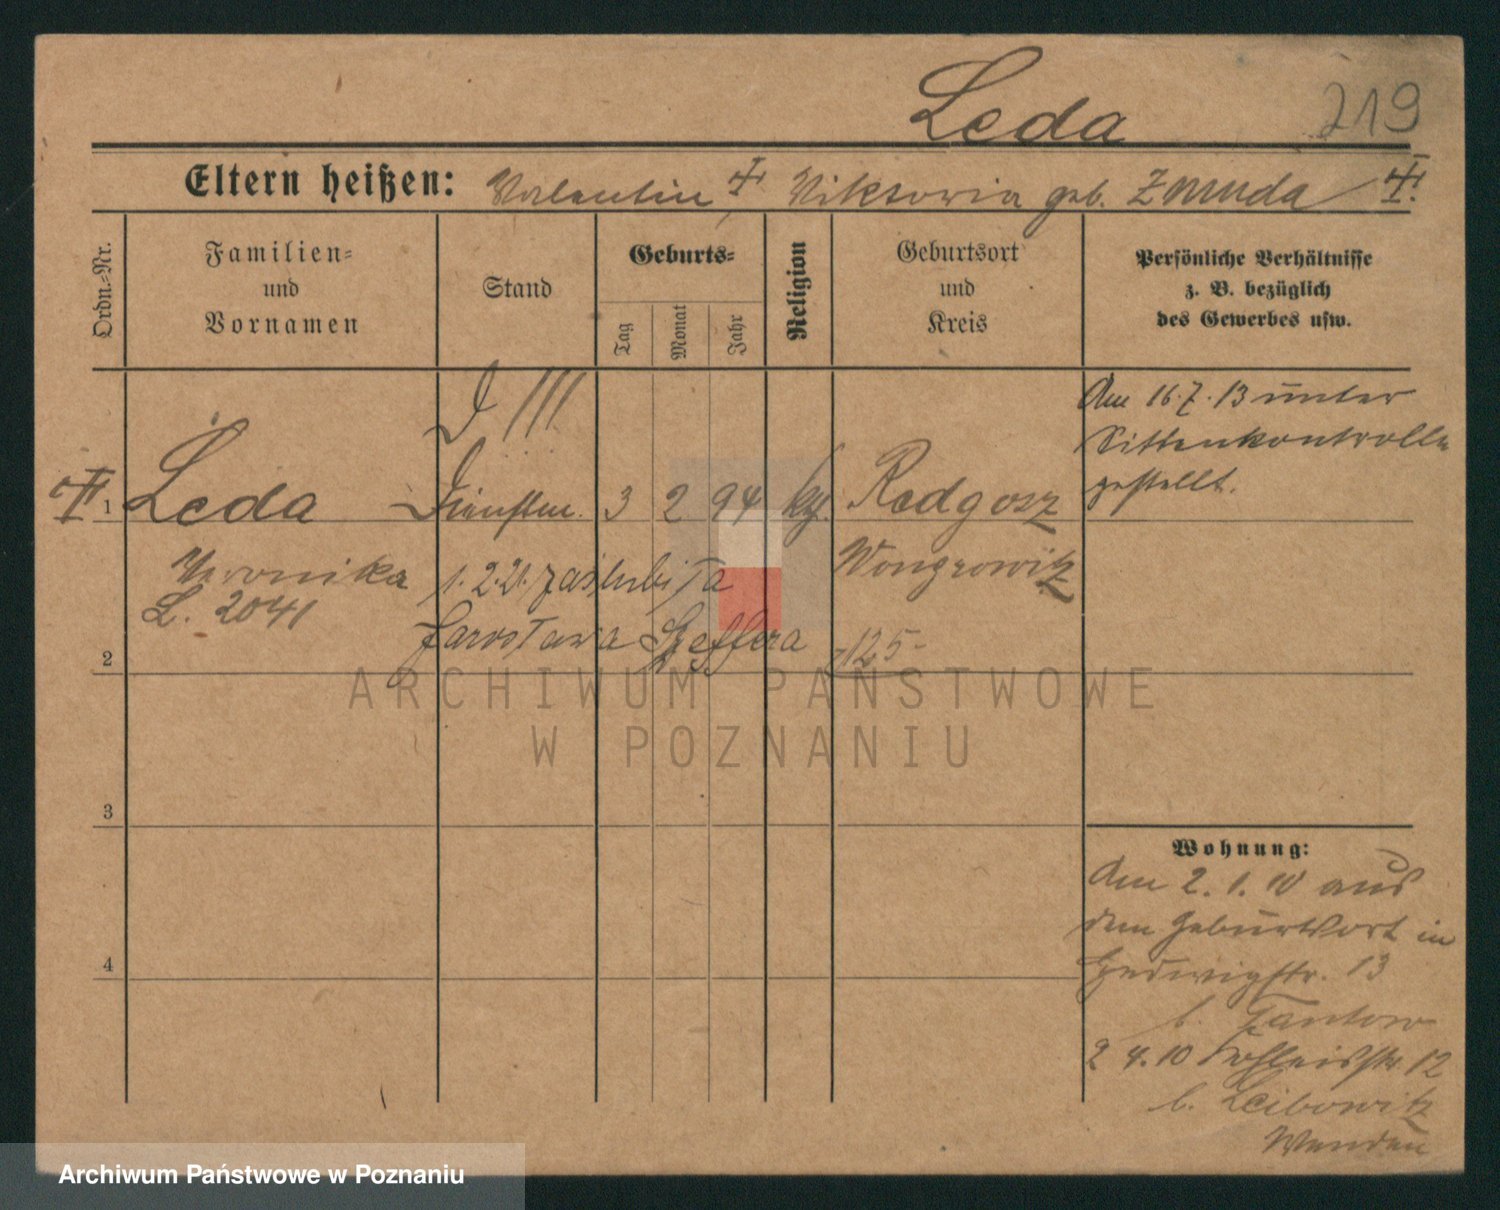 Leda 219
Eltern heißen: Valentin Viktoria geb. Zmuda
Ordn.-Nr.
Familien-
und
Vornamen
Stand
Geburts-
Tag
Monat
Jahr
Religion
Geburtsort
und
Kreis
Persönliche Verhältnisse
z. B. bezüglich
des Gewerbes usw.
D III
Am 16.7.13 unter
Sittenkontrolle
gestellt.
1 Leda Dienstm. 3 2 94 kt. Redgosz
Veronika 1.2.21. zaślubiła Wongrowitz
L. 2041
Jarosława Szeffera 125-
2
3
4
Wohnung:
Am 2.1.10 aus
dem Geburtsort in
Hedwigstr. 13
b. Tantow
2 4.10 12
b. Leibowitz
Wenden
ARCHIWUM PAŃSTWOWE
W POZNANIU
Archiwum Państwowe w Poznaniu